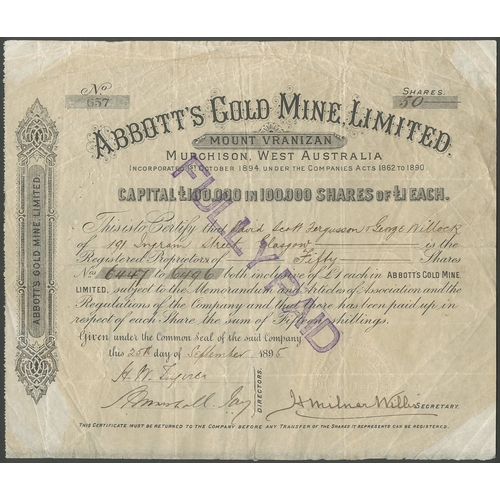 No. 657
SHARES. 50
ABBOTT'S GOLD MINE, LIMITED.
MOUNT VRANIZAN
MURCHISON, WEST AUSTRALIA
INCORPORATED 1ST OCTOBER 1894, UNDER THE COMPANIES ACTS 1862 TO 1890
CAPITAL £100,000 IN 100,000 SHARES OF £1 EACH.
FULLY PAID
This is to Certify that David Scott Fergusson & George Willock
of 191 Ingram Street, Glasgow is the
Registered Proprietors of Fifty Shares
Nos 6447 to 6496 both inclusive of £1 each in ABBOTT'S GOLD MINE,
LIMITED, subject to the Memorandum and Articles of Association and the
Regulations of the Company and that there has been paid up in
respect of each Share the sum of Fifteen shillings.
Given under the Common Seal of the said Company
this 25th day of September 1895
H. W.
DIRECTORS.
SECRETARY.
THIS CERTIFICATE MUST BE RETURNED TO THE COMPANY BEFORE ANY TRANSFER OF THE SHARES IT REPRESENTS CAN BE REGISTERED.
ABBOTT'S GOLD MINE, LIMITED.